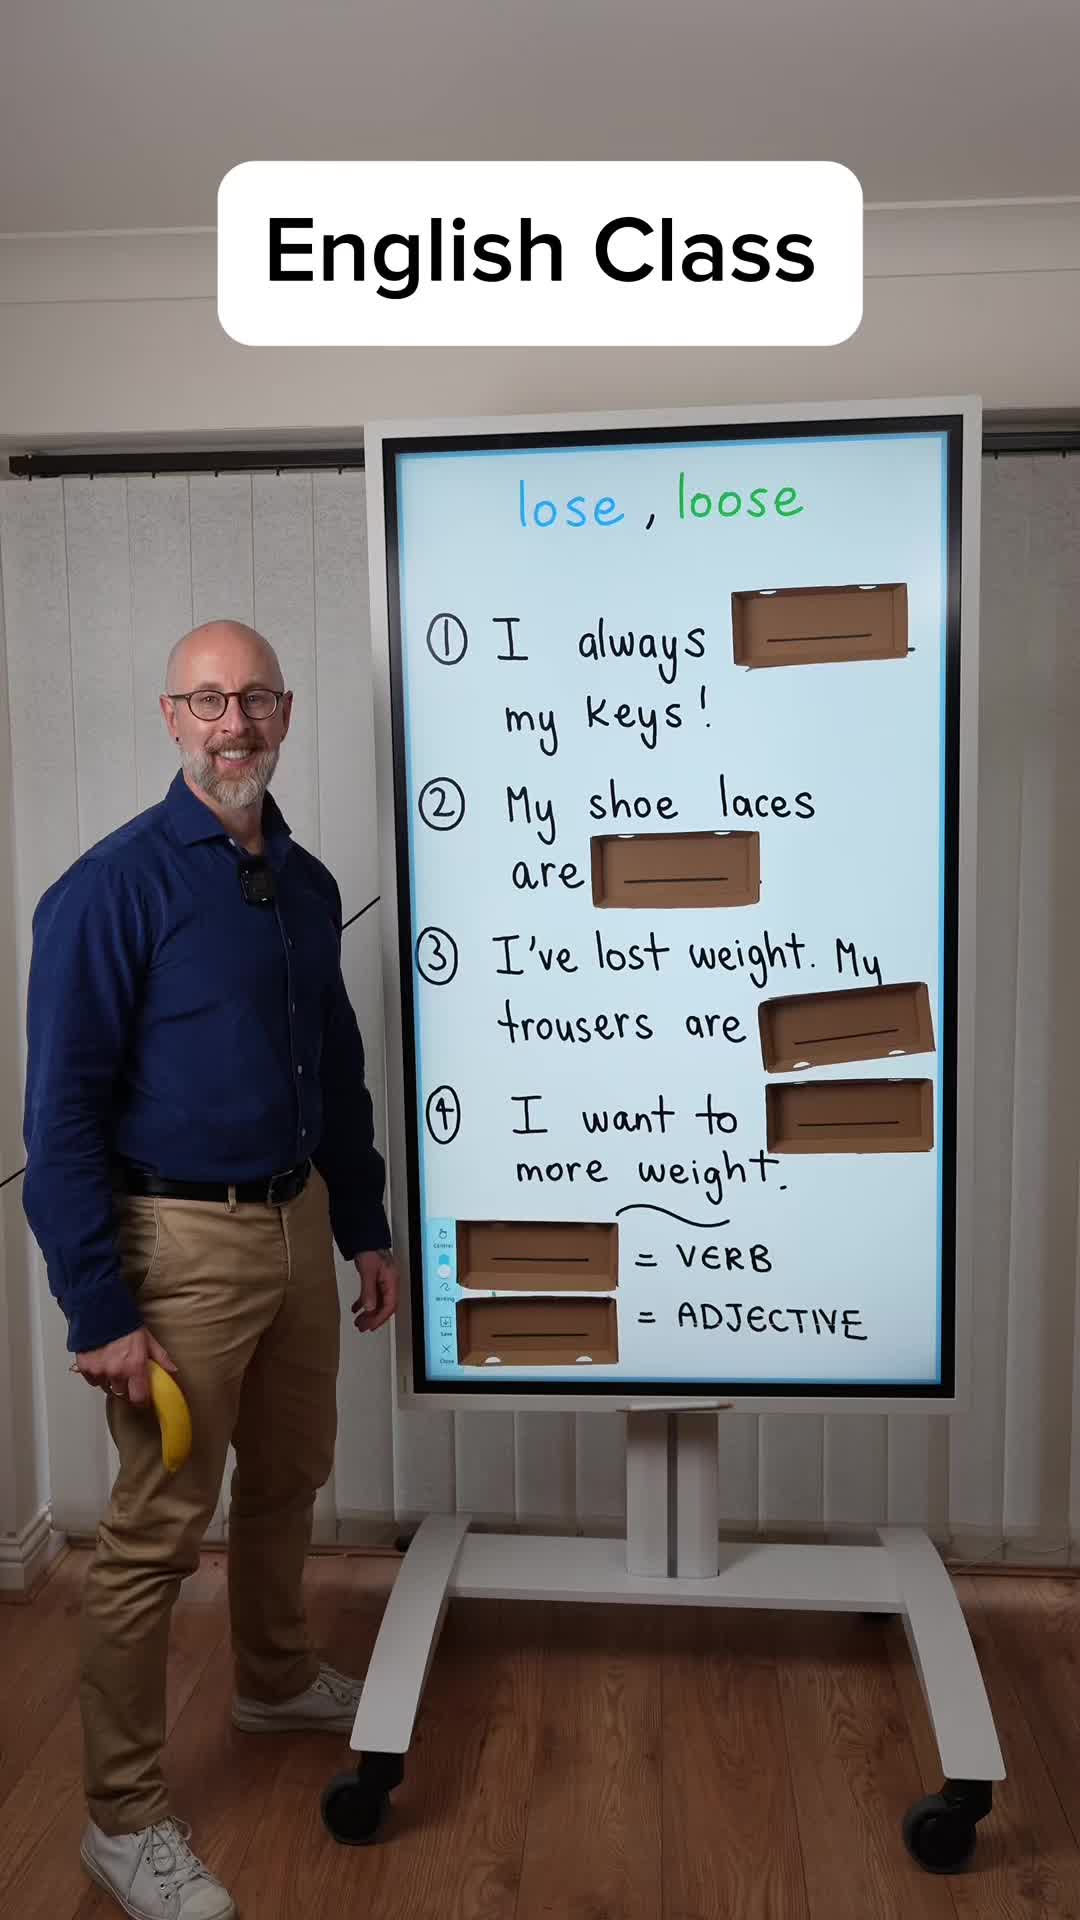 English Class
lose, loose
① I always
my keys!
② My shoe laces
are
③ I've lost weight. My
trousers are
④ I want to
more weight.
= VERB
= ADJECTIVE
Control
Writing
Save
Close